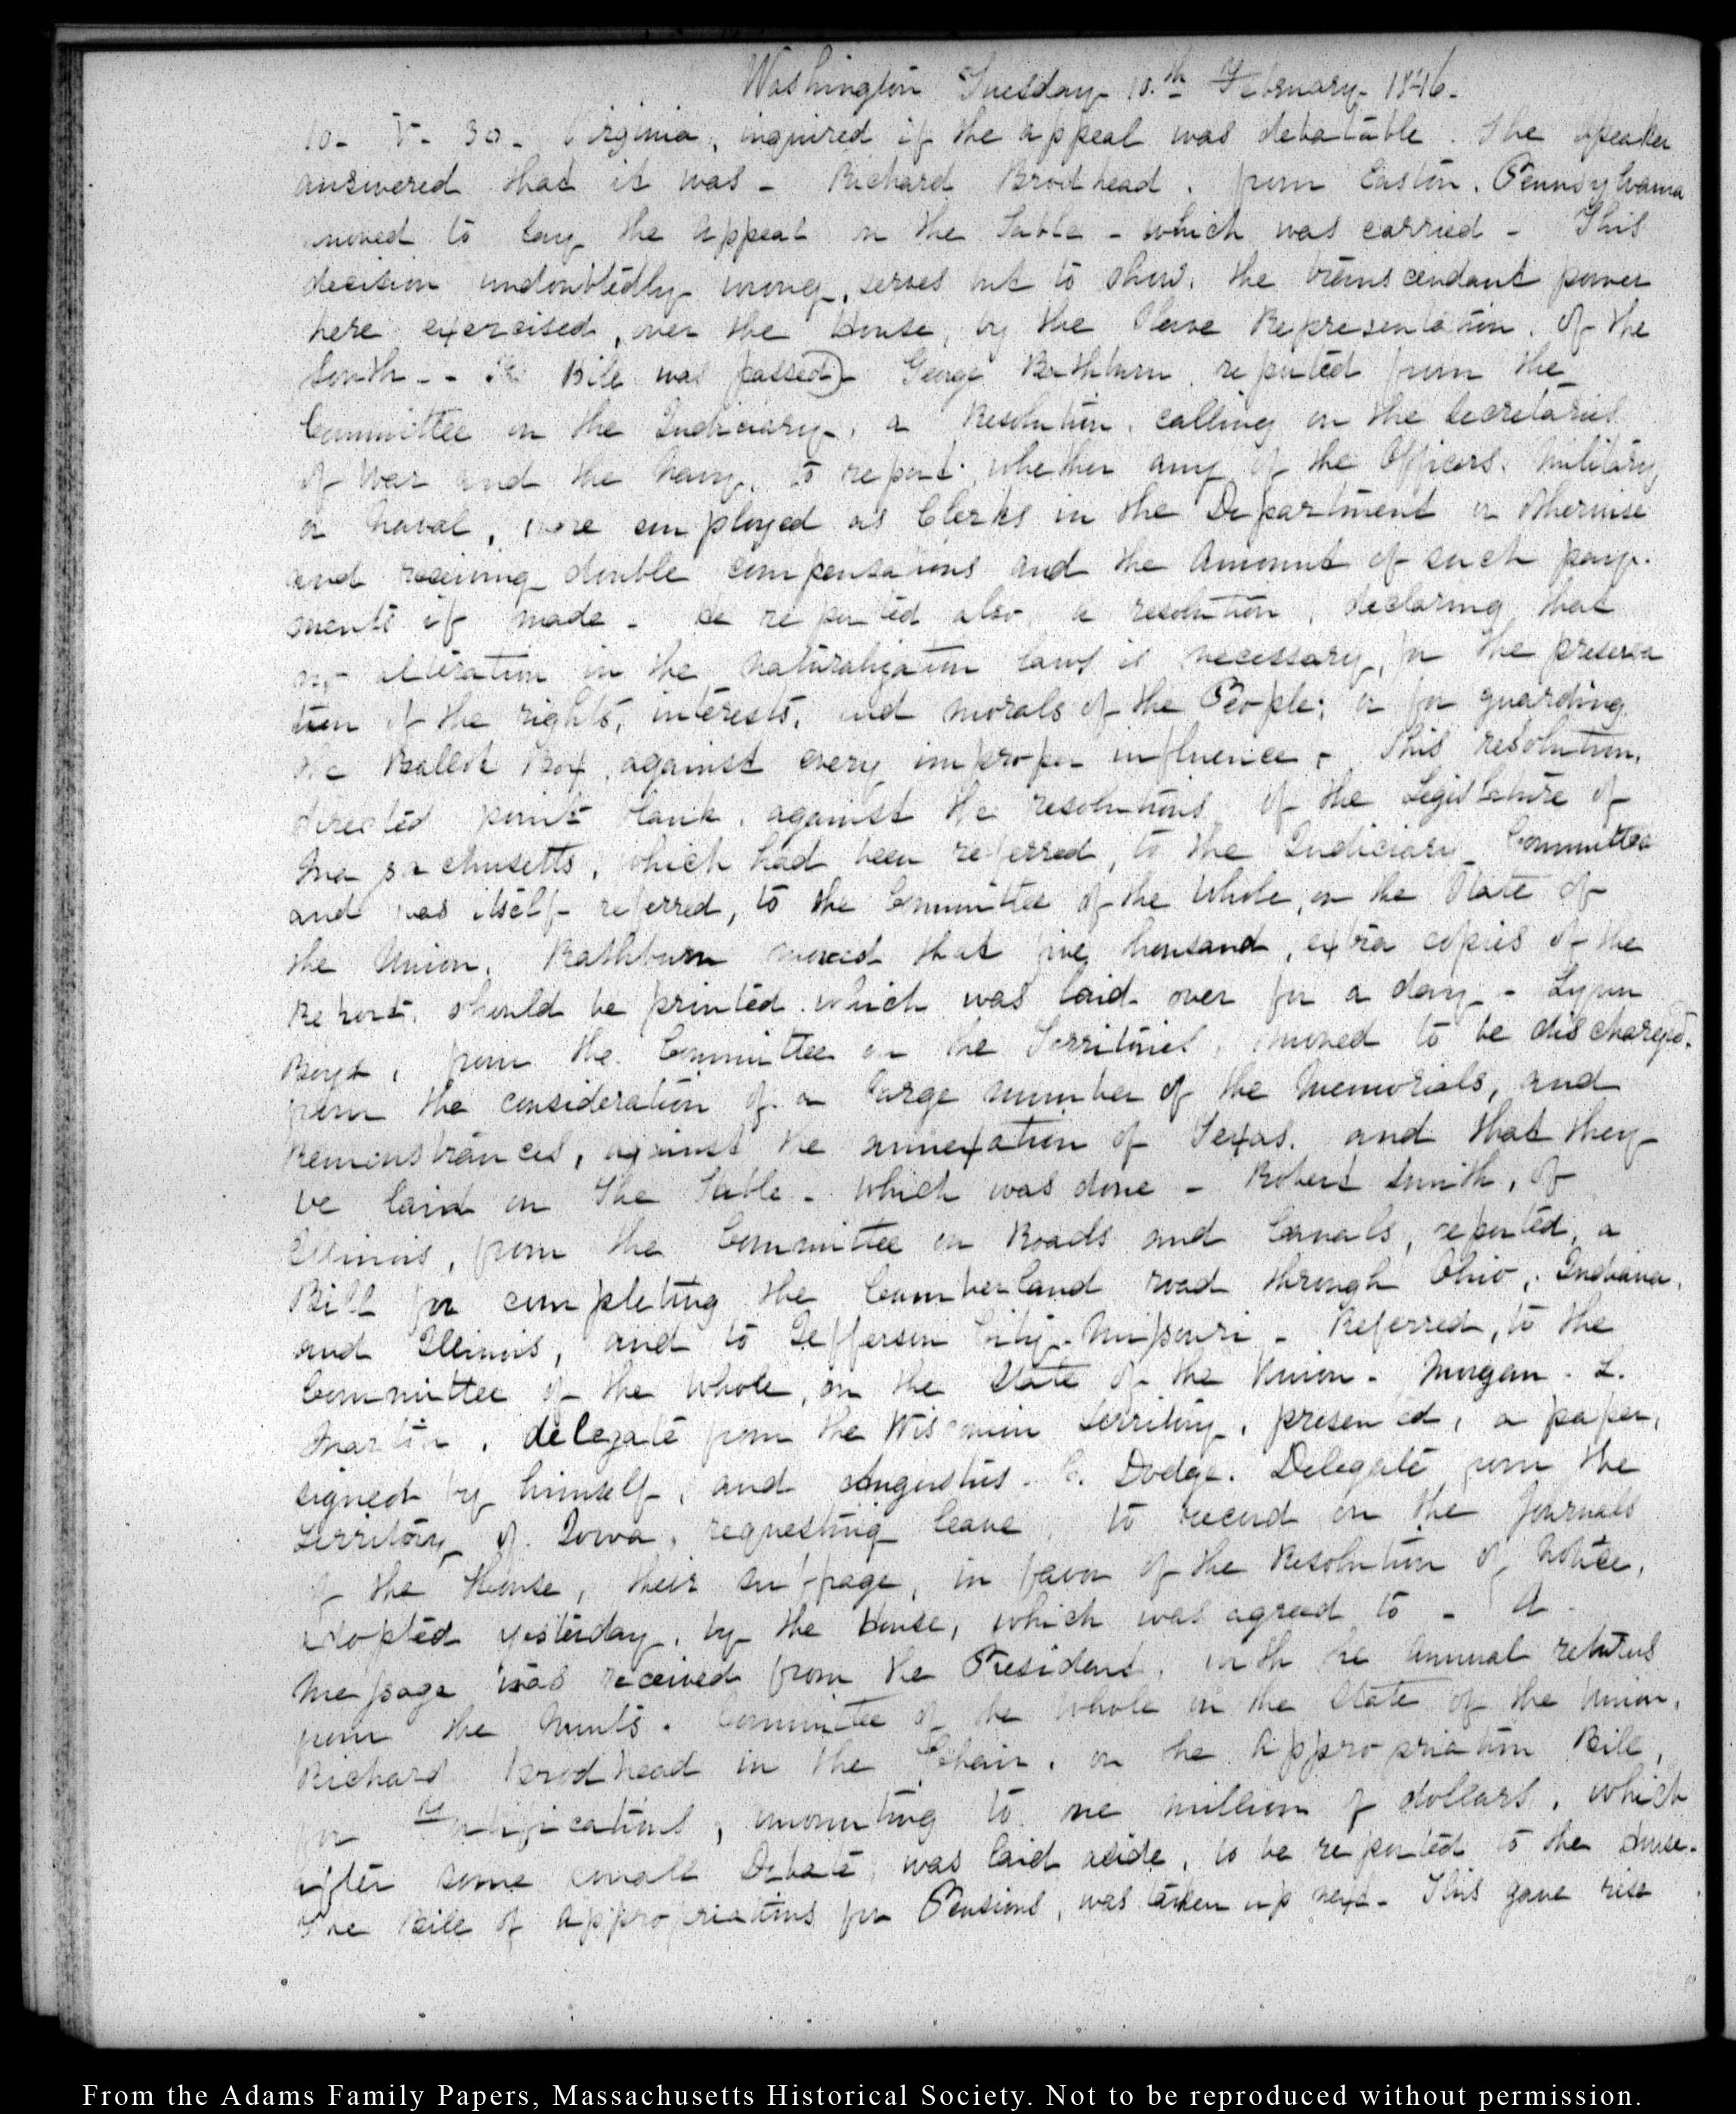 Washington Tuesday 10.th February 1846.
10. V. 30. Virginia, inquired if the appeal was debatable. The Speaker
answered that it was - Richard Brodhead, from Easton, Pennsylvania
moved to lay the appeal on the table - which was carried - This
decision undoubtedly wrong, serves but to show, the transcendant power
here exercised, over the House, by the Slave Representation, of the
South - - The Bill was passed) George Rathburn reported from the
Committee on the Judiciary, a Resolution, calling on the Secretaries
of War and the Navy, to report whether any of the Officers, Military
or Naval, were employed as Clerks in the Department or otherwise
and receiving double compensations and the amount of such pay-
ments if made - he reported also a resolution, declaring that
no alteration in the naturalization laws is necessary, for the preserva
tion of the rights, interests, and morals of the People; or for guarding
the Ballot Box against every improper influence - This resolution,
directed point blank, against the resolutions of the Legislature of
Massachusetts, which had been referred, to the Judiciary Committee
and was itself referred, to the Committee of the Whole, on the State of
the Union. Rathburn moved that five thousand, extra copies of the
Report, should be printed which was laid over for a day - Lynn
Boyd, from the Committee on the Territories, moved to be discharged.
from the consideration of a large number of the Memorials, and
Remonstrances, against the annexation of Texas, and that they
be laid on the Table - which was done - Robert Smith, of
Illinois, from the Committee on Roads and Canals, reported, a
Bill for completing the Cumberland road through Ohio, Indiana,
and Illinois, and to Jefferson City Missouri - Referred, to the
Committee of the Whole, on the State of the Union - Morgan. L.
Martin, delegate from the Wisconsin Territory, presented, a paper,
signed by himself, and Augustus. C. Dodge. Delegate from the
Territory of Iowa, requesting leave, to record on the Journals
of the House, their suffrage, in favor of the Resolution of Notice,
adopted yesterday, by the House, which was agreed to - A
Message was received from the President, with the Annual returns
from the Mints. Committee of the Whole on the State of the Union,
Richard Brodhead in the Chair, on the Appropriation Bill,
for Fortifications, amounting to one million of dollars, which
after some small Debate, was laid aside, to be reported to the House.
The Bill of Appropriations for Pensions, was taken up next - This gave rise
From the Adams Family Papers, Massachusetts Historical Society. Not to be reproduced without permission.